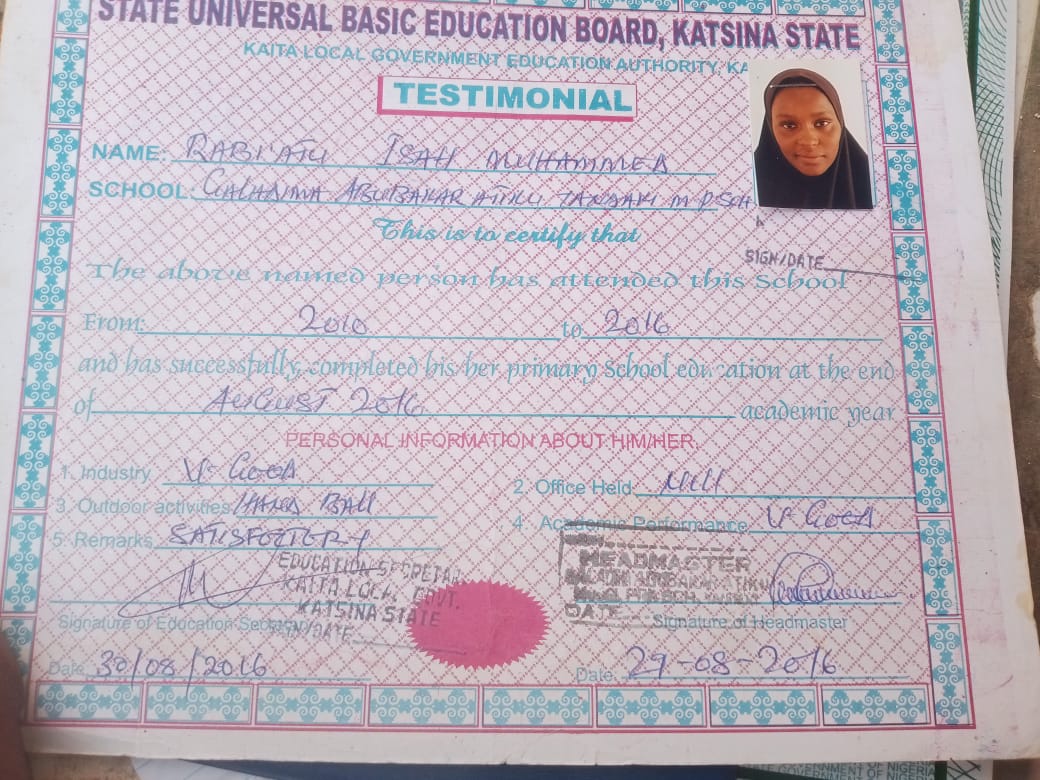 STATE UNIVERSAL BASIC EDUCATION BOARD, KATSINA STATE
KAITA LOCAL GOVERNMENT EDUCATION AUTHORITY, KA
TESTIMONIAL
NAME: RABI'ATU ISAH MUHAMMED
SCHOOL: ABUBAKAR ATIKU M P SCH
This is to certify that
SIGN/DATE
The above named person has attended this School
From: 2010 to 2016
and has successfully completed his/her primary School education at the end
of AUGUST 2016 academic year
PERSONAL INFORMATION ABOUT HIM/HER
1. Industry V-GOOD
2. Office Held Nill
3. Outdoor activities HAND BALL
4. Academic Performance V GOOD
5. Remarks SATISFECTORY
EDUCATION SECRETAR
KAITA LOCAL GOVT.
KATSINA STATE
SIGN/DATE
HEADMASTER
DATE
Signature of Education Secretary
Signature of Headmaster
Date 30/08/2016
Date: 29-08-2016
GOVERNMENT OF NIGERIA